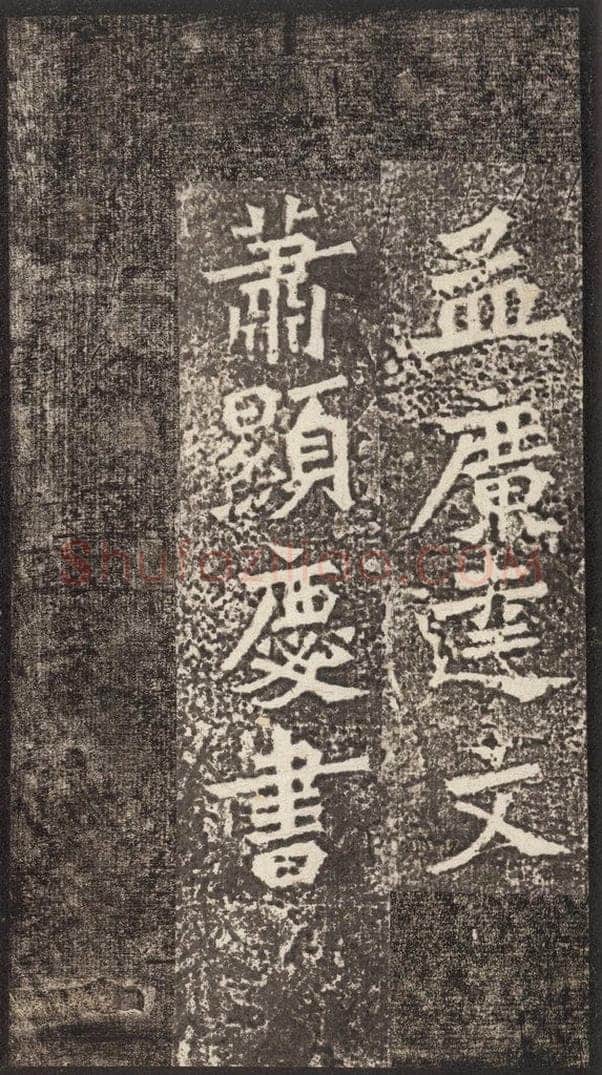 孟廣達文
蕭顯慶書
Shufaziliao.COM